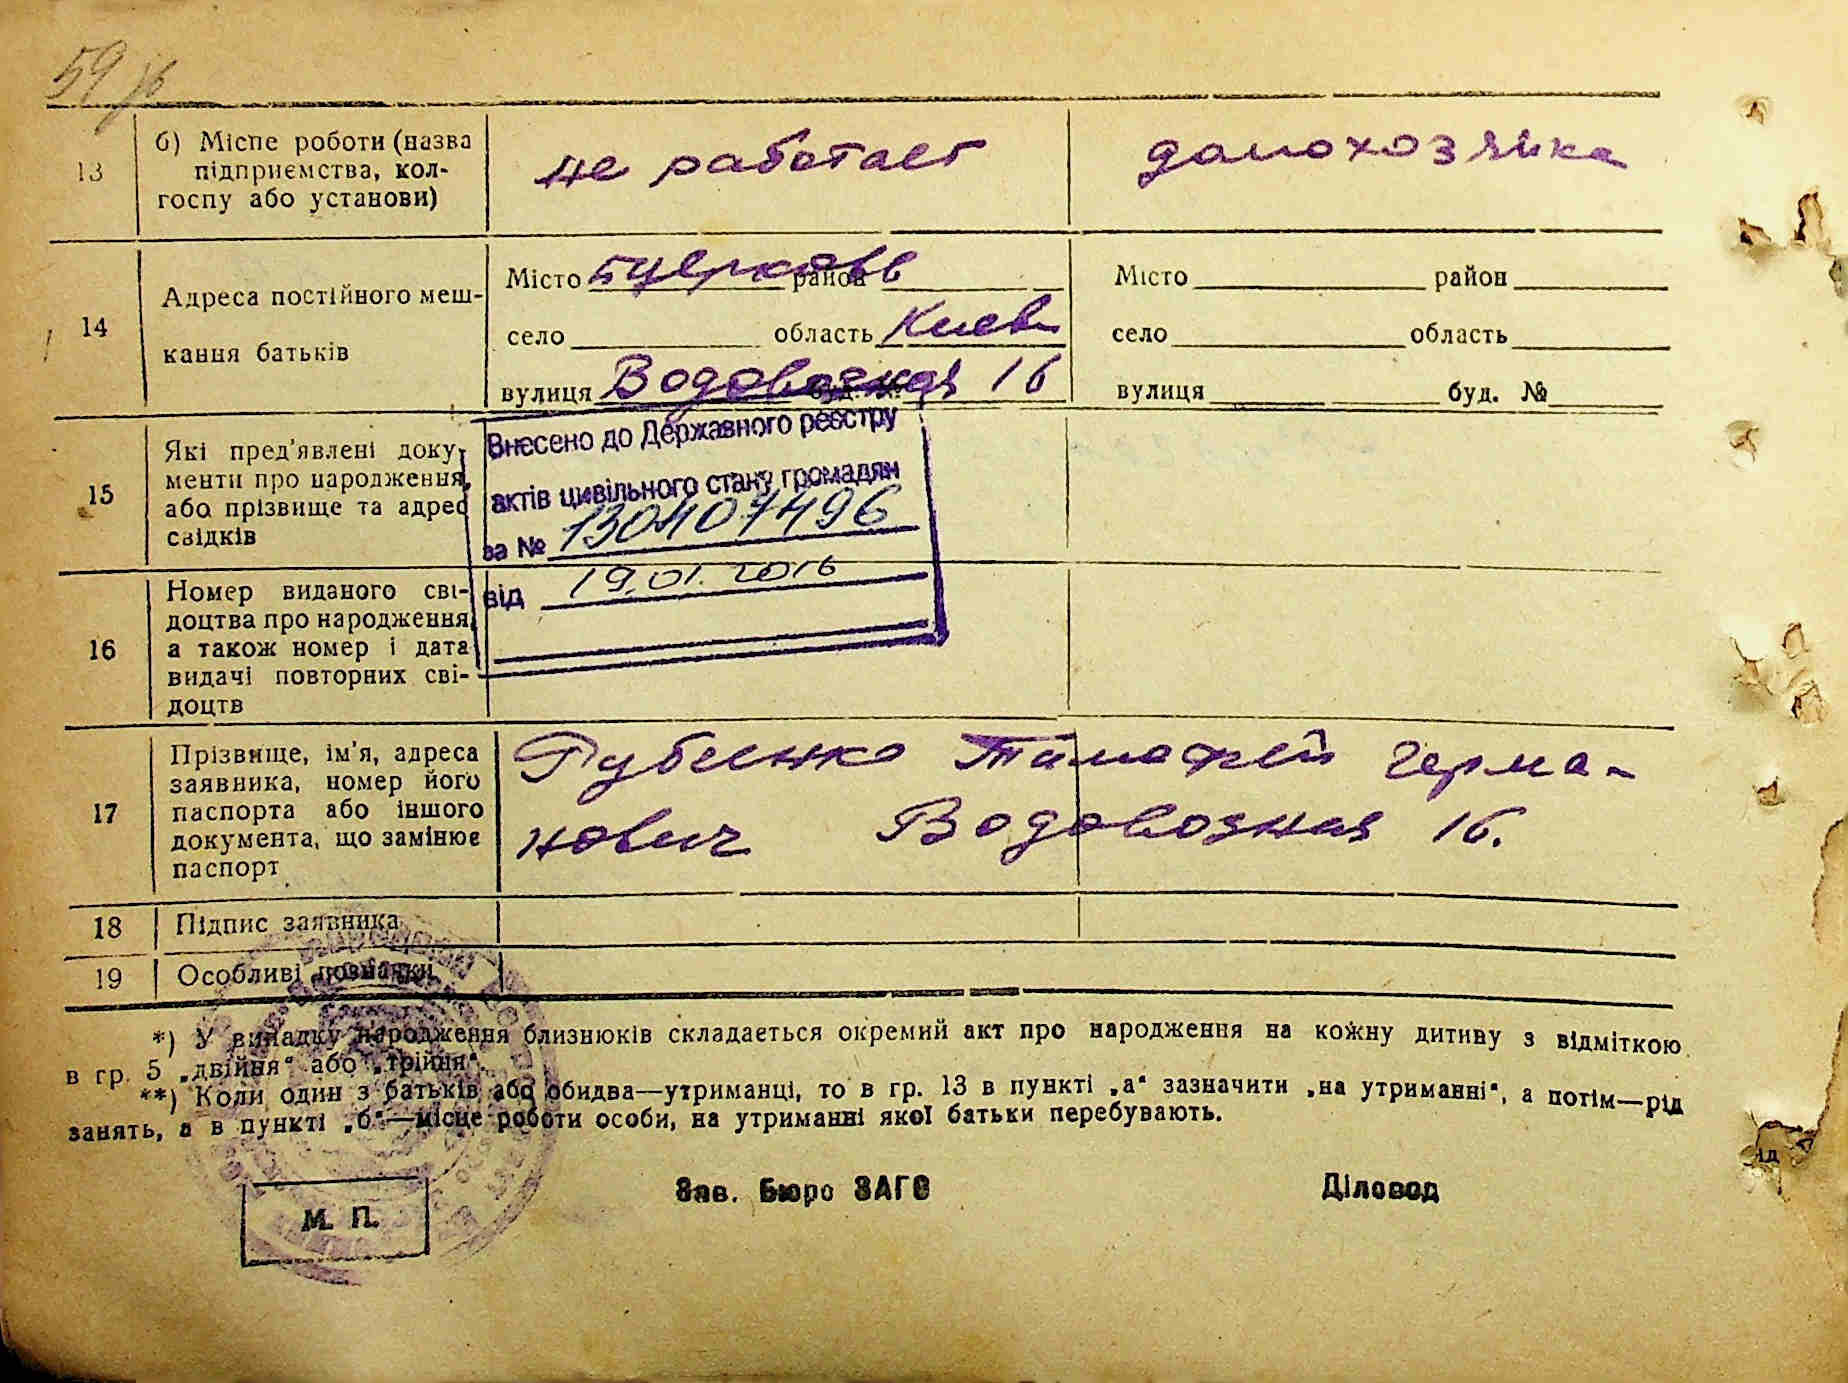 59
13
б) Місце роботи (назва підприємства, колгоспу або установи)
не работает
домохозяйка
14
Адреса постійного мешкання батьків
Місто Бцерковь район
село область Киев
вулиця Водовозная 16
Місто район
село область
вулиця буд. №
15
Які пред'явлені документи про народження, або прізвище та адрес свідків
Внесено до Державного реєстру
актів цивільного стану громадян
за № 130407496
від 19.01.2016
16
Номер виданого свідоцтва про народження, а також номер і дата видачі повторних свідоцтв
17
Прізвище, ім'я, адреса заявника, номер його паспорта або іншого документа, що замінює паспорт
Рубенко Тимофей Герма-
нович Водовозная 16.
18 Підпис заявника
19 Особливі позначки
*) У випадку народження близнюків складається окремий акт про народження на кожну дитину з відміткою
в гр. 5 „двійня“ або „трійня“.
**) Коли один з батьків або обидва—утриманці, то в гр. 13 в пункті „а“ зазначити „на утриманні“, а потім—рід
занять, а в пункті „б“—місце роботи особи, на утриманні якої батьки перебувають.
М. П.
Зав. Бюро ЗАГС
Діловод